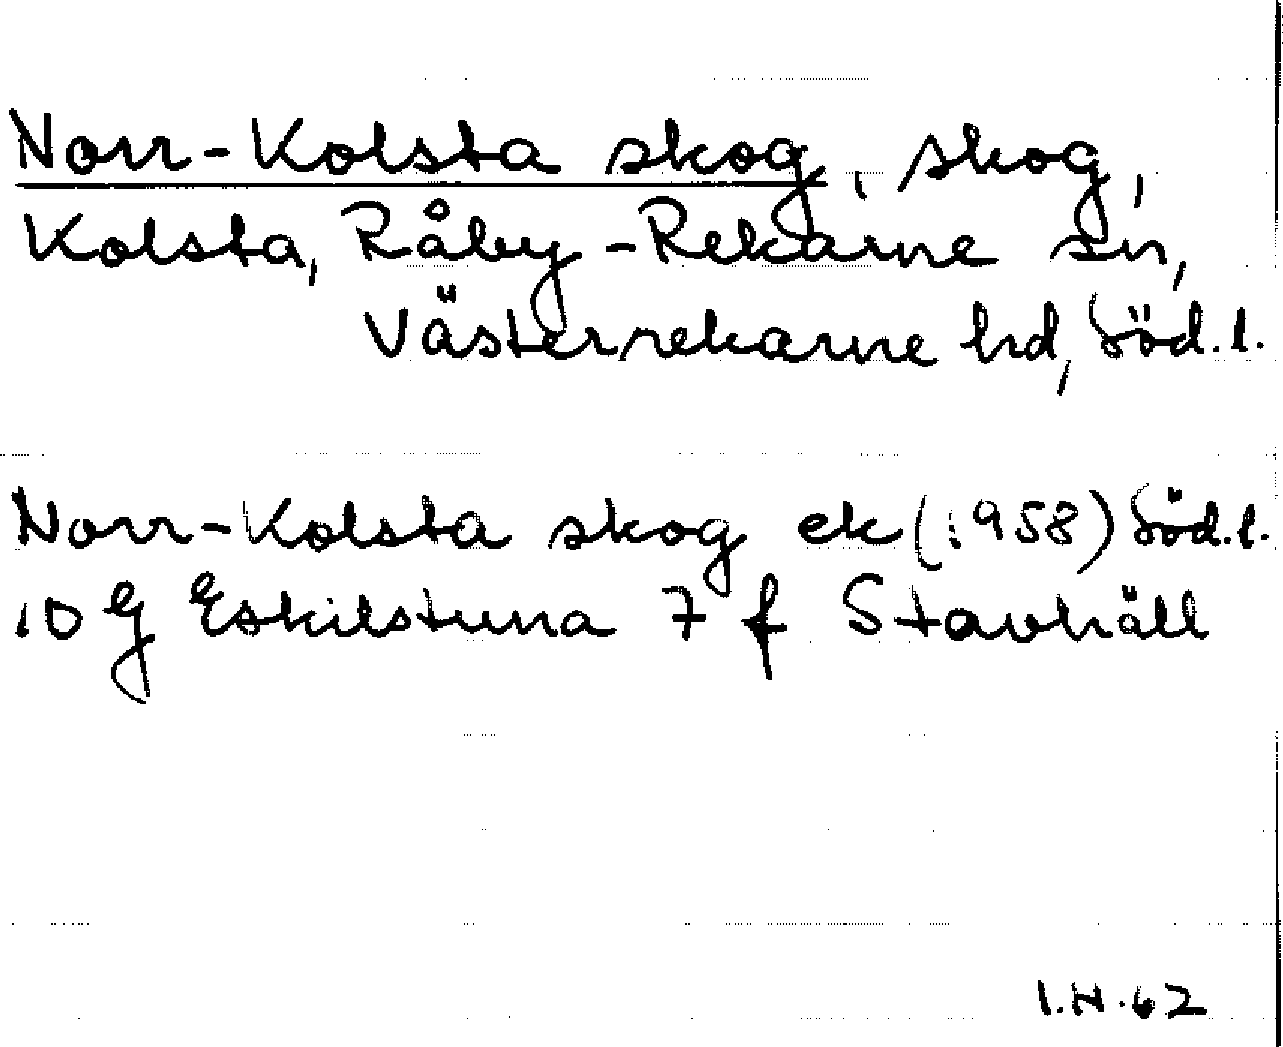 Norr-Kolsta skog, skog,
Kolsta, Råby-Rekarne sn,
Västerrekarne hd, Söd.l.
Norr-Kolsta skog ek (1958) Söd.l.
10 G Eskilstuna 7 f Stavhäll
I.H.62